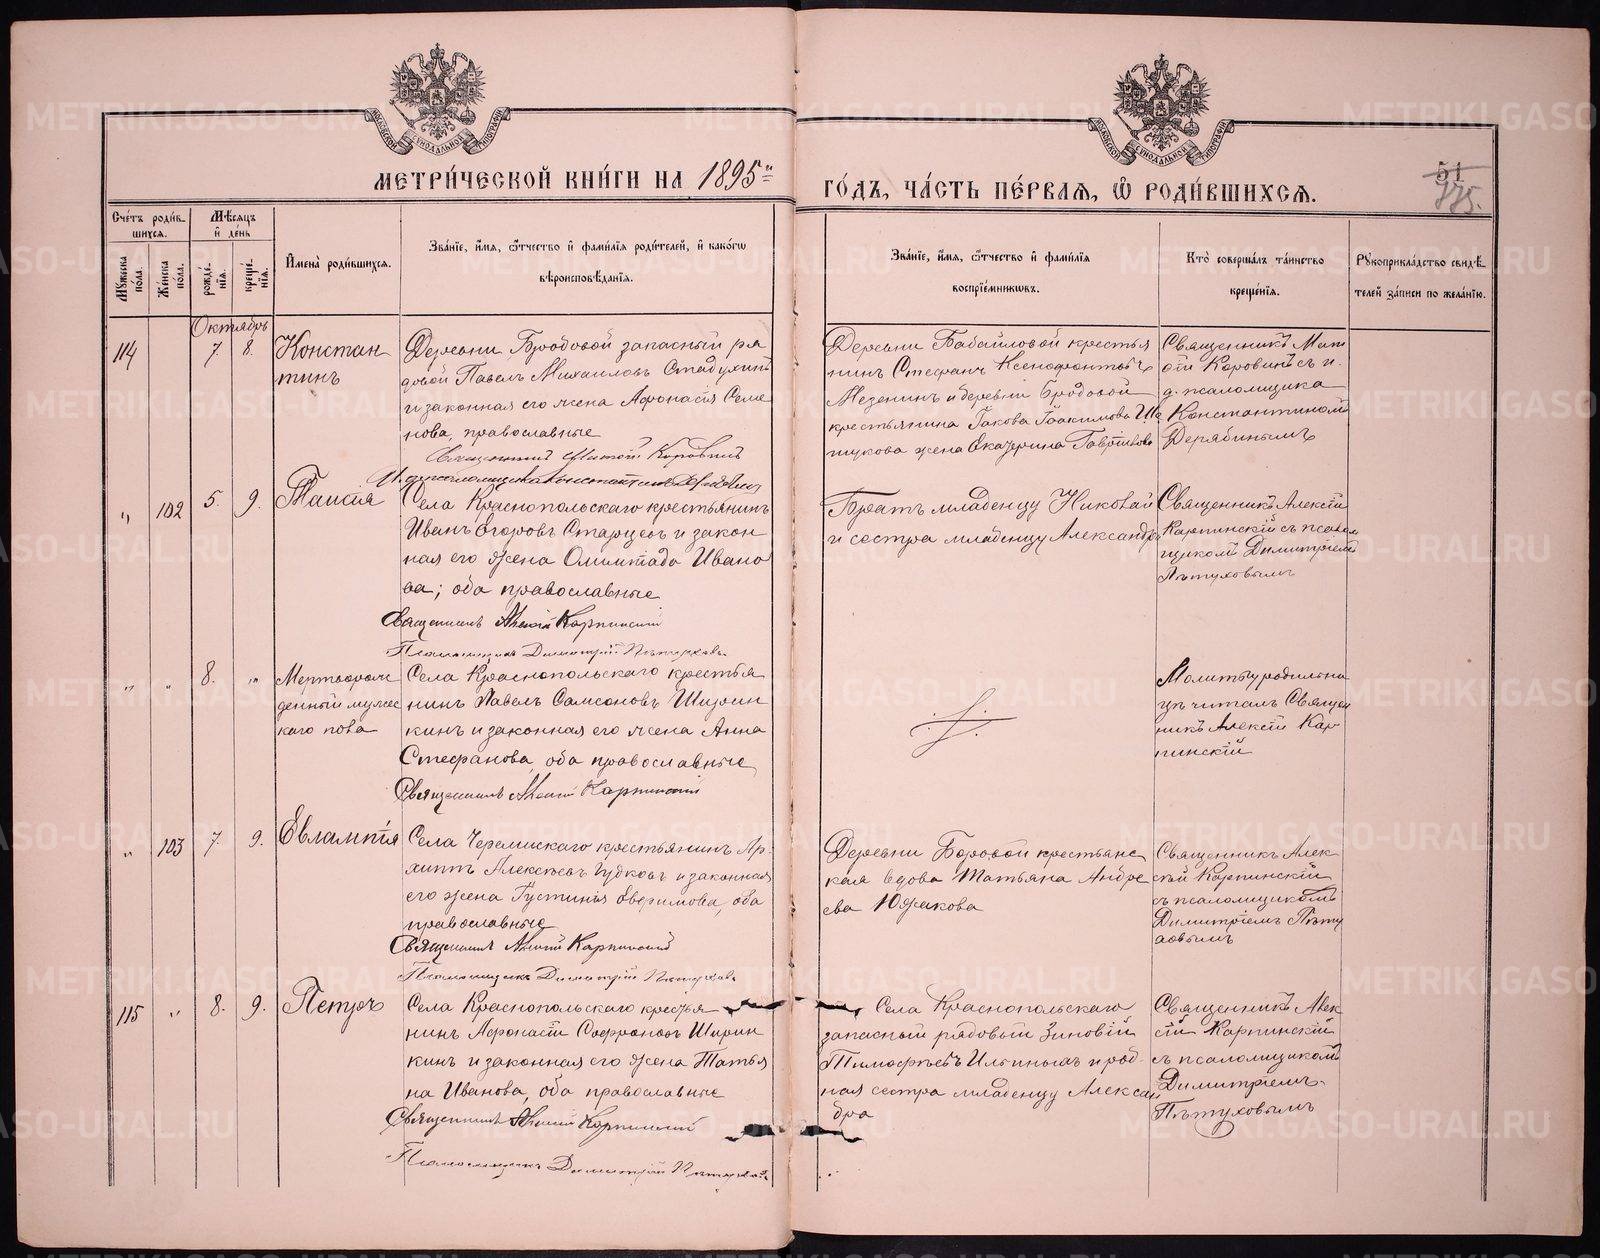 МЕТРИ́ЧЕСКОЙ КНИ́ГИ НА 1895й
ГО́ДЪ, ЧА́СТЬ ПЕ́РВАѦ, Ѡ҆ РОДИ́ВШИХСѦ.
51
775.
Сче́тъ роди́в-
шихся.
Мѣ́сяцъ
и҆ де́нь
Мужеска пола.
Же́нска пола.
рожде́нїѧ.
креще́нїѧ.
И҆мена̀ роди́вшихсѧ.
Зва́нїе, и҆́мѧ, ѻ҆́тчество и҆ фами́лїѧ роди́телей, и҆ како́гѡ
вѣроисповѣ́данїѧ.
Зва́нїе, и҆́мѧ, ѻ҆́тчество и҆ фами́лїѧ
воспрїе́мникѡвъ.
Кто̀ соверша́лъ та́инство
креще́нїѧ.
Рꙋкоприкла́дство свидѣ́-
телей за́писи по жела́нїю.
Октябрь
114 7. 8. Констан
тинъ
Деревни Бродовой запасный ря
довой Павелъ Михаиловъ Стадухинъ
и законная его жена Афонасія Семе
нова, православные
Священникъ Матѳій Коровинъ
И. д. псаломщика Константинъ Дерябинъ
Деревни Бабаиловой крестья
нинъ Стефанъ Ксенофонтовъ
Мезенинъ и деревни Бродовой
крестьянина Іакова Іоакимова Ше
пукова жена Екатерина Гаврилова
Священникъ Мат
ѳій Коровинъ съ и.
д. псаломщика
Константиномъ
Дерябинымъ
„ 102 5. 9. Таисія
Села Краснопольскаго крестьянинъ
Иванъ Егоровъ Старцевъ и закон
ная его жена Олимпіада Ивано
ва; оба православные
Священникъ Алексій Карпинскій
Псаломщикъ Димитрій Пѣтуховъ
Братъ младенцу Николай
и сестра младенцу Александра
Священникъ Алексій
Карпинскій съ псалом
щикомъ Димитріемъ
Пѣтуховымъ
„ „ 8. „ Мертворож
денный мужес
каго пола
Села Краснопольскаго крестья
нинъ Павелъ Самсоновъ Ширин
кинъ и законная его жена Анна
Стефанова, оба православные
Священникъ Алексій Карпинскій
Молитву родильни
цѣ читалъ Священ
никъ Алексій Кар
пинскій
„ 103 7. 9. Евлампія
Села Черемисскаго крестьянинъ Ар
хипъ Алексѣевъ Гудковъ и законная
его жена Густинія Евфимова, оба
православные
Священникъ Алексій Карпинскій
Псаломщикъ Димитрій Пѣтуховъ
Деревни Боровой крестьянс
кая вдова Татьяна Андре
ева Южакова
Священникъ Алек
сій Карпинскій
съ псаломщикомъ
Димитріемъ Пѣту
ховымъ
115 „ 8. 9. Петръ
Села Краснопольскаго крестья
нинъ Афонасій Софроновъ Ширин
кинъ и законная его жена Татья
на Иванова, оба православные
Священникъ Алексій Карпинскій
Псаломщикъ Димитрій Пѣтуховъ
Села Краснопольскаго
запасный рядовый Зиновій
Тимофѣевъ Ильиныхъ и род-
ная сестра младенцу Алексан
дра
Священникъ Алек
сій Карпинскій
съ псаломщикомъ
Димитріемъ
Пѣтуховымъ